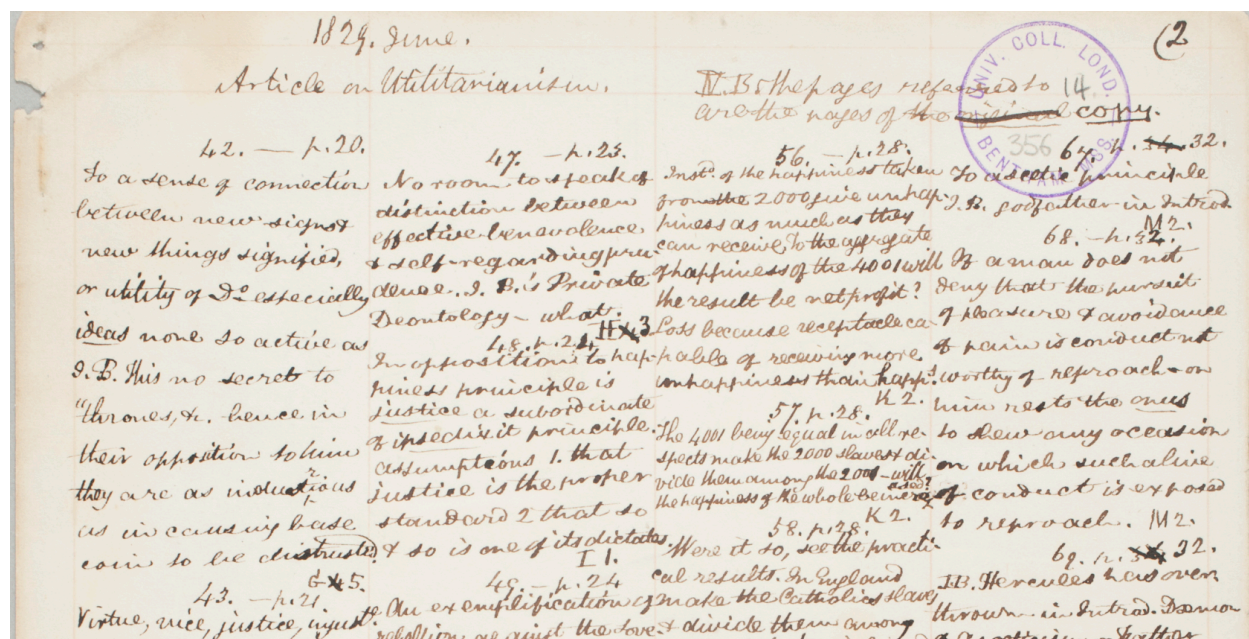 1829. June.
(2
Article on Utilitarianism.
N.B. the pages referred to
are the pages of the original copy.
UNIV. COLL. LOND.
BENTHAM MSS.
14
356
42. — p.20.
To a sense of connection
between new signs &
new things signified,
or utility of Do. especially
ideas none so active as
J.B. This no secret to
"thrones, &c. hence in
their opposition to him
they are as industrious
as in causing base
coin to be distrusted.
G 5.
43. — p.21.
Virtue, vice, justice, injust.
47. — p.23.
No room to speak of
distinction between
effective benevolence
& self-regarding pru-
dence. J.B.'s Private
Deontology — what.
H 3
48. p.24
In opposition to hap-
piness principle is
justice a subordinate
of ipsedixit principle.
assumptions 1. that
justice is the proper
standard 2 that so
& so is one of its dictates.
I 1.
49. — p.24
An exemplification of
rebellion against the love.
56. — p.28.
Instd. of the happiness taken
from the 2000 give unhap-
piness as much as they
can receive To the aggregate
of happiness of the 4001 will
the result be net profit?
Loss because receptacle ca-
pable of receiving more
unhappiness than happs.
K 2.
57. p.28.
The 4001 being equal in all re-
spects make the 2000 slaves & di-
vide them among the 2001 — will
the happiness of the whole be increased?
K 2.
58. p.28.
Were it so, see the practi-
cal results. In England
make the Catholics slaves
& divide them among
67. p. 34. 32.
To ascetic principle
J.B. godfather in Introd.
M2.
68. — p.32.
If a man does not
deny that the pursuit
of pleasure & avoidance
of pain is conduct not
worthy of reproach — on
him rests the onus
to shew any occasion
on which such a line
of conduct is exposed
to reproach. M2.
69. p. 34 32.
J.B. Hercules has over
thrown in Introd. Dæmon